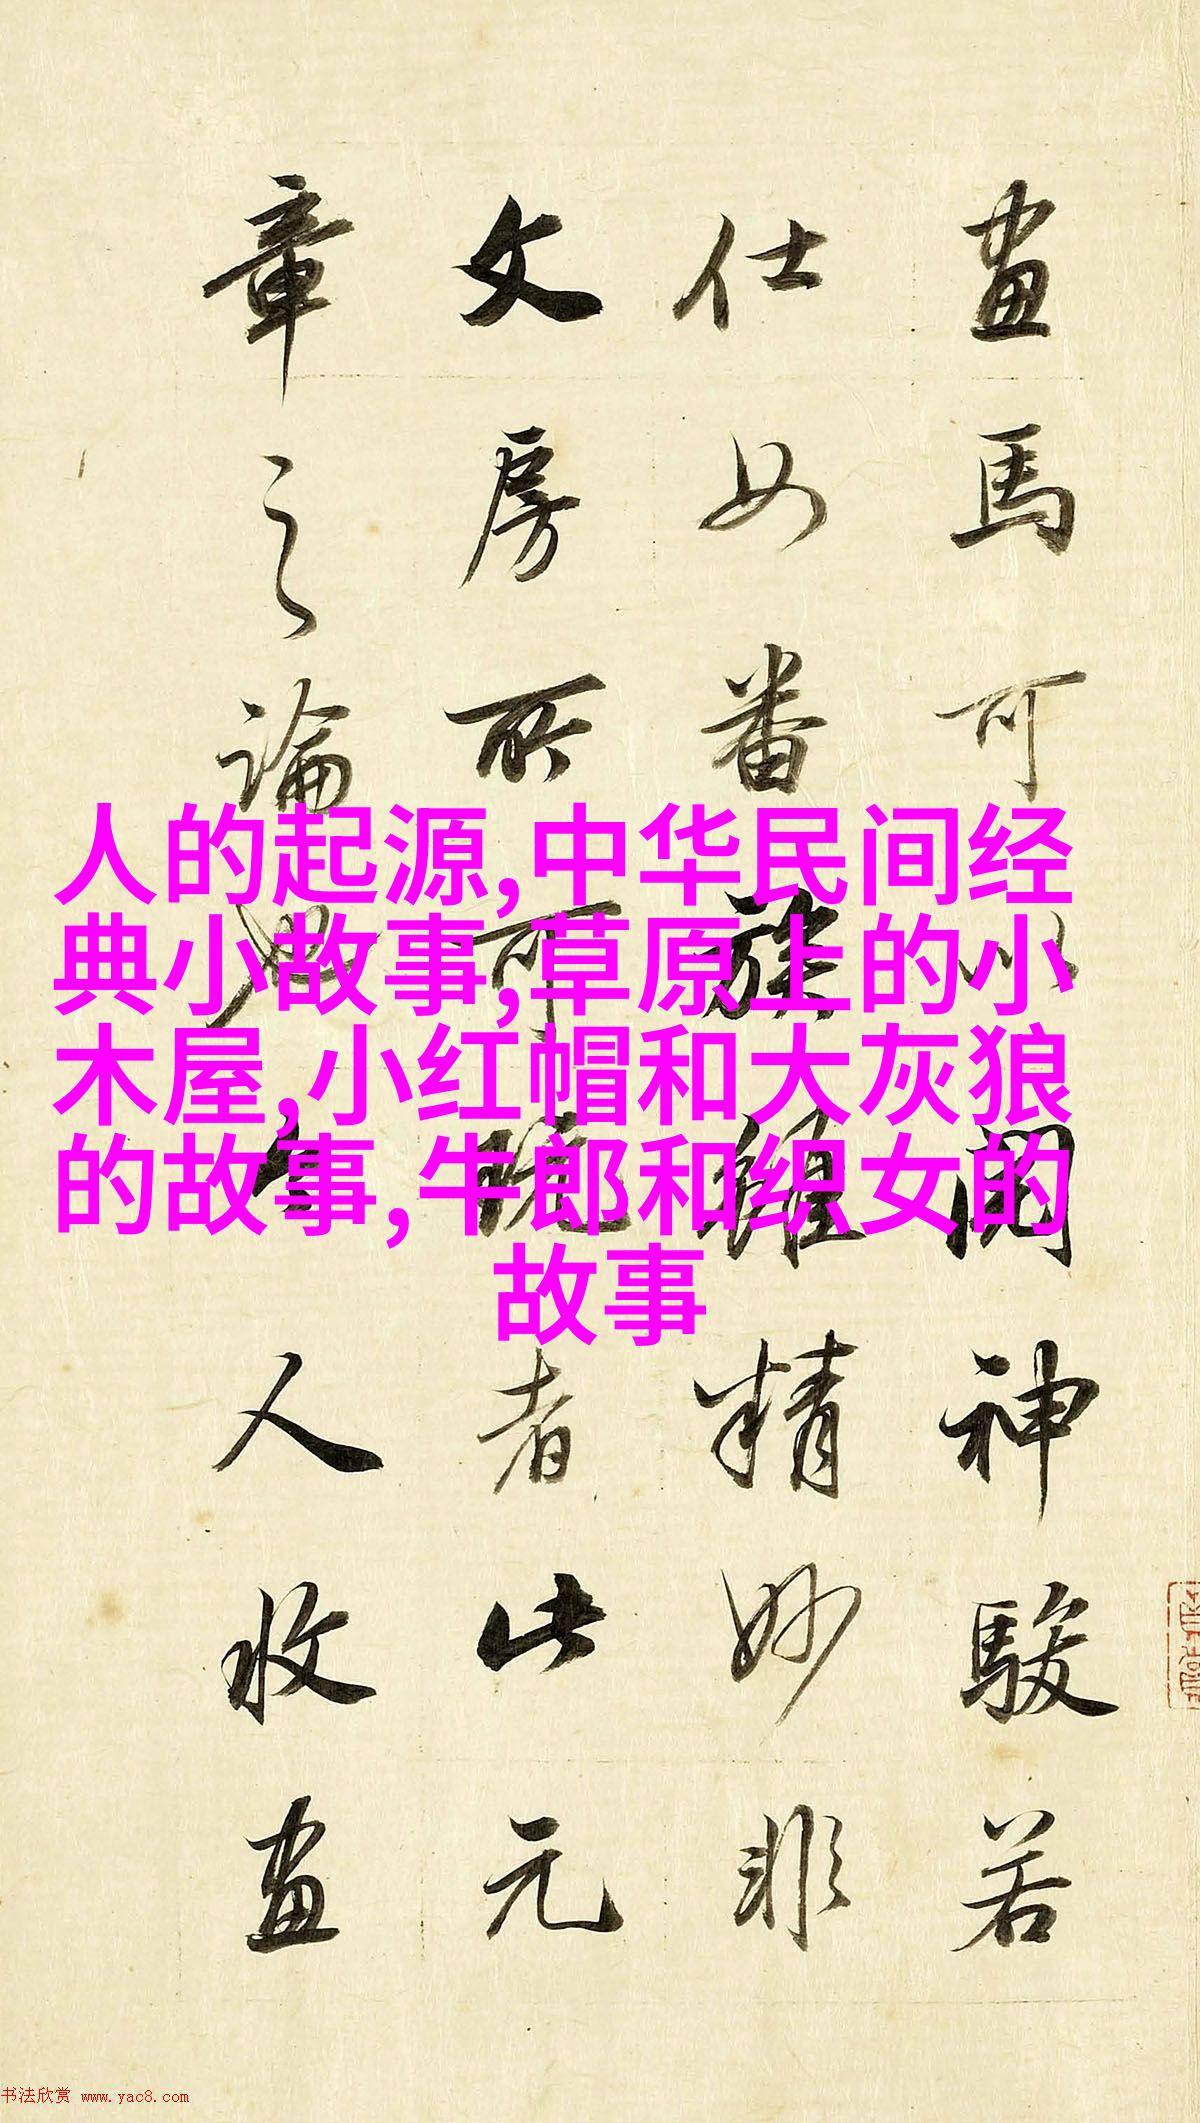 畫馬可以閱神駿若
仕女番族雖精妙非
文房所可玩者此元
章之論也今人收畫
人的起源,中华民间经
典小故事,草原上的小
木屋,小红帽和大灰狼
的故事,牛郎和织女的
故事
书法欣赏 www.yac8.com